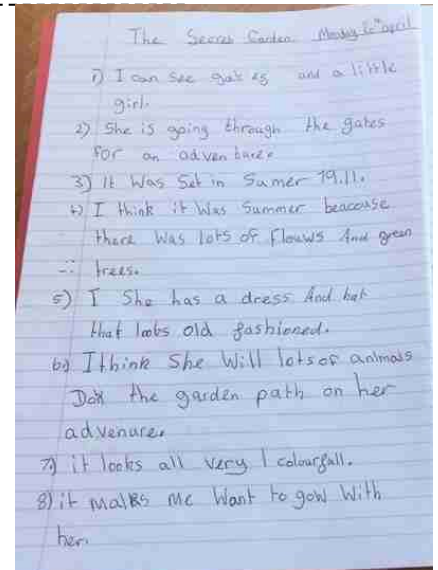 The Secret Garden Monday 20th april
1) I can see gates and a little
girl.
2) She is going through the gates
for an adventure.
3) It Was Set in Sumer 19.11.
4) I think it Was Summer beacouse
there Was lots of flouws And green
trees.
5) I She has a dress And hat
that looks old fashioned.
6) I think She Will lots of animals
the garden path on her
advenure.
7) it looks all very colourfall.
8) it makes me Want to gow With
her.